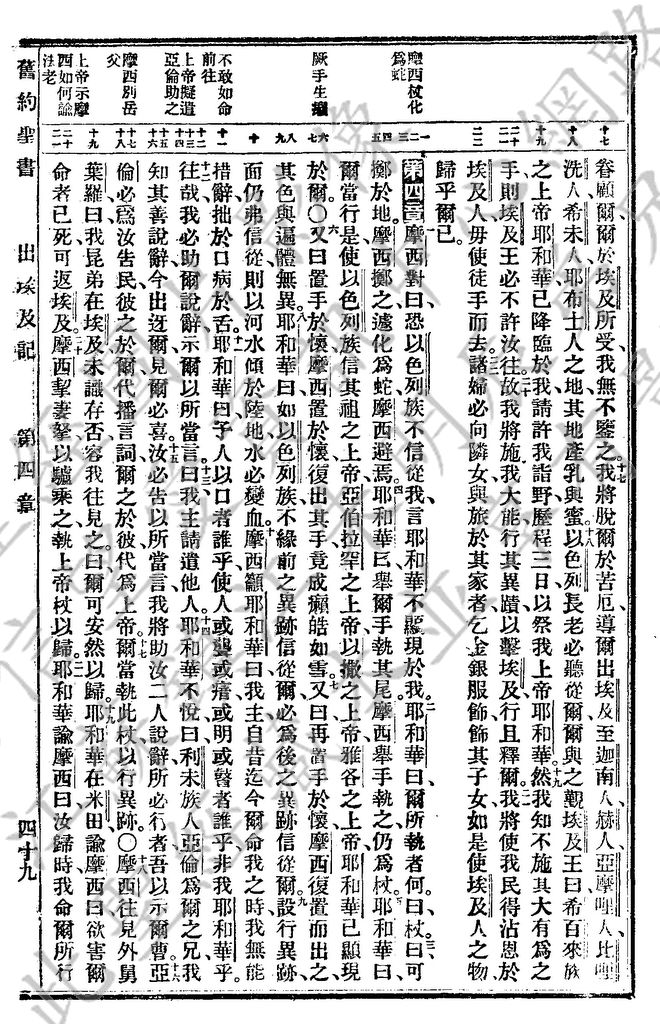 眷顧爾爾於埃及所受我無不鑒之十七我將脫爾於苦厄導爾出埃及至迦南人赫人亞摩哩人比哩
洗人希未人耶布士人之地其地產乳與蜜十八以色列長老必聽從爾爾與之覲埃及王曰希百來族
之上帝耶和華已降臨於我請許我詣野歷程三日以祭我上帝耶和華十九然我知不施其大有為之
手則埃及王必不許汝往二十故我將施我大能行其異蹟以擊埃及行且釋爾二一我將使我民得沾恩於
埃及人毋使徒手而去二二諸婦必向隣女與旅於其家者乞金銀服飾飾其子女如是使埃及人之物
歸乎爾已
第四章一摩西對曰恐以色列族不信從我言耶和華不顯現於我二耶和華曰爾所執者何曰杖三曰可
擲於地摩西擲之遽化為蛇摩西避焉四耶和華曰舉爾手執其尾摩西舉手執之仍為杖五耶和華曰
爾當行是使以色列族信其祖之上帝亞伯拉罕之上帝以撒之上帝雅各之上帝耶和華已顯現
於爾〇六又曰置手於懷摩西置於懷復出其手竟成癩皓如雪七又曰再置手於懷摩西復置而出之
其色與遍體無異八耶和華曰如以色列族不緣前之異跡信從爾必為後之異跡信從九爾設行異跡
面仍弗信從則以河水傾於陸地水必變血十摩西籲耶和華曰我主自昔迄今爾命我之時我無能
措辭拙於口病於舌十一耶和華曰予人以口者誰乎使人或聾或瘖或明或瞽者誰乎非我耶和華乎
十二往哉我必助爾說辭示爾以所當言十三曰我主請遣他人十四耶和華不悅曰利未族人亞倫為爾之兄我
知其善說辭今出迓爾見爾必喜十五汝必告以所當言我將助汝二人說辭所必行者吾以示爾曹十六亞
倫必為汝告民彼之於爾代播言詞爾之於彼代為上帝十七爾當執此杖以行異跡〇十八摩西往見外舅
葉羅曰我昆弟在埃及未識存否容我往見之曰爾可安然以歸十九耶和華在米田諭摩西曰欲害爾
命者已死可返埃及二十摩西挈妻孥以驢乘之執上帝杖以歸二一耶和華諭摩西曰汝歸時我命爾所行
摩西杖化為蛇
厥手生癩
不敢如命前往
上帝擬遣亞倫助之
摩西別岳父
上帝示摩西如何諭法老
舊約聖書 出埃及記 第四章 四十九